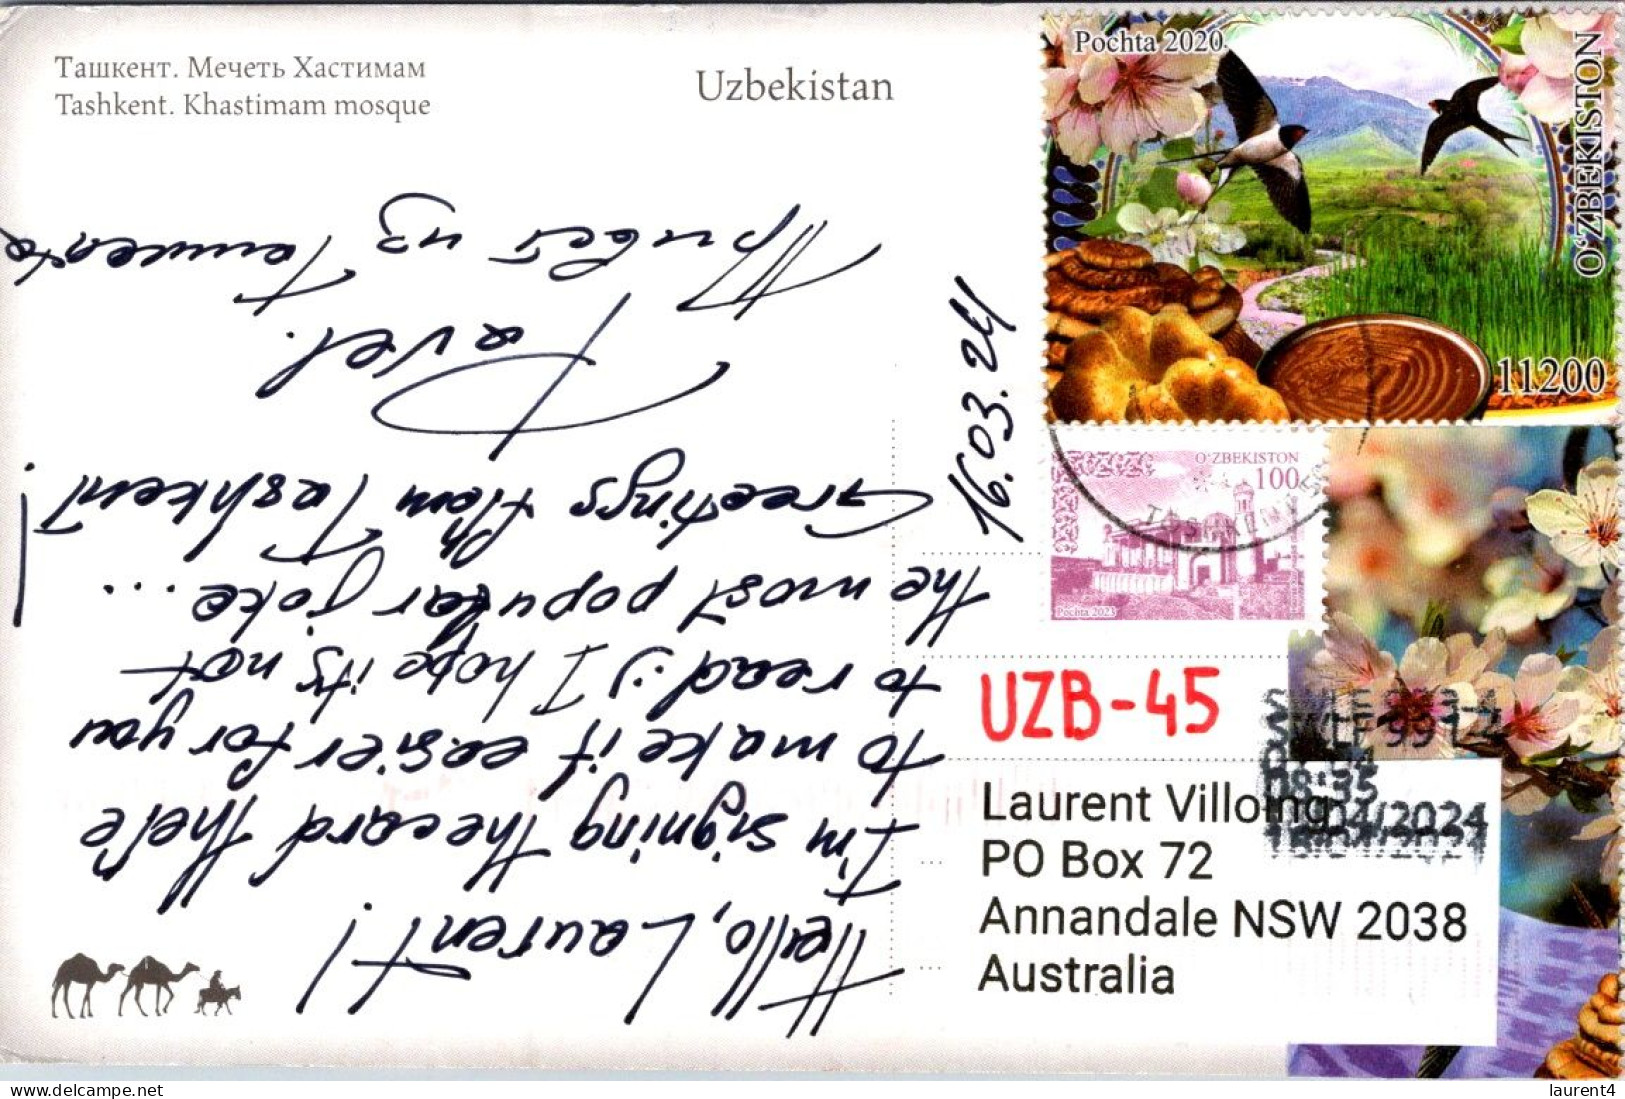 Ташкент. Мечеть Хастимам
Tashkent. Khastimam mosque
Uzbekistan
Pochta 2020
O‘ZBEKISTON
11200
O‘ZBEKISTON
100
Pochta 2023
TASHKENT
16.03.24
UZB-45
Laurent Villoing
PO Box 72
Annandale NSW 2038
Australia
SWLF 991-4
08:35
/04/2024
Hello, Laurent!
I'm signing the card there
to make it easier for you
to read :) I hope it's not
the most popular joke ...
Greetings from Tashkent!
Pavel.
Привет из Ташкента
laurent4